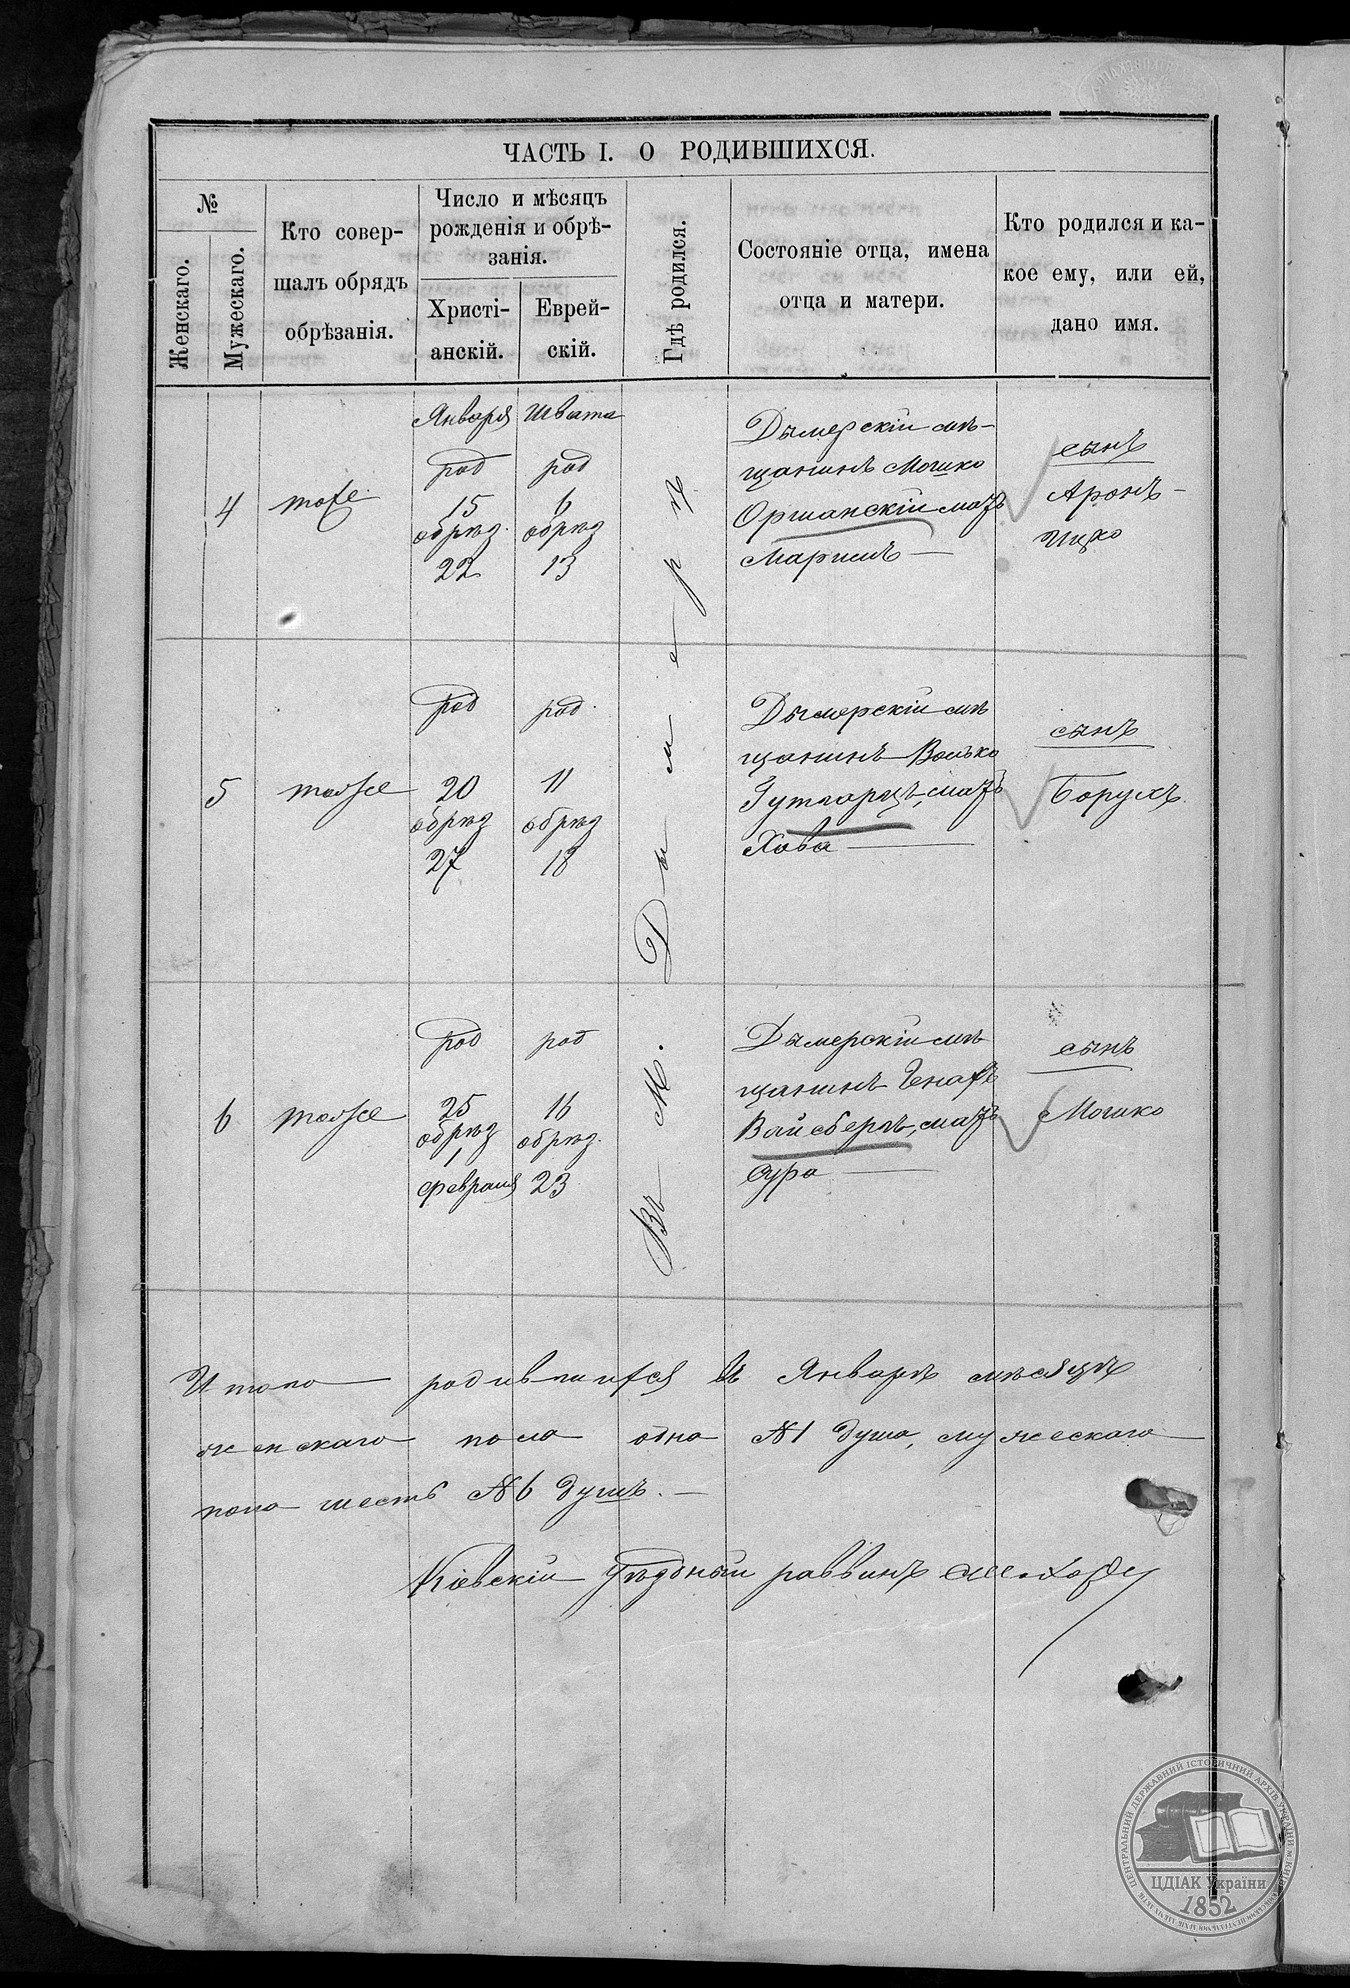 ЧАСТЬ I. О РОДИВШИХСЯ.
№
Женскаго.
Мужескаго.
Кто совер-
шалъ обрядъ
обрѣзанія.
Число и мѣсяцъ
рожденія и обрѣ-
занія.
Христі-
анскій.
Еврей-
скій.
Гдѣ родился.
Состояніе отца, имена
отца и матери.
Кто родился и ка-
кое ему, или ей,
дано имя.
Января
Швата
4
тоже
род
15
обрѣз.
22
род
6
обрѣз
13
Дымерскій мѣ-
щанинъ Мошко
Оршанскій мать
Маріимъ
сынъ
Аронъ-
Ицко
5
тоже
род
20
обрѣз
27
род.
11
обрѣз
18
Дымерскій мѣ
щанинъ Волько
Гутгарцъ, мать
Хова
сынъ
Борухъ
6
тоже
род
25
обрѣз
1
февраля
род
16
обрѣз.
23
Дымерскій мѣ
щанинъ
Вайсбергъ, мать
Сура
сынъ
Мошко
Въ М. Дымерѣ
Итого родившихся въ Январѣ мѣсяцѣ
женскаго пола одна № 1 душа, мужескаго
пола шесть № 6 душъ.
Кіевскій Уѣздный раввинъ
ЦЕНТРАЛЬНИЙ ДЕРЖАВНИЙ ІСТОРИЧНИЙ АРХІВ УКРАЇНИ м. КИЇВ
ЦДІАК України
1852